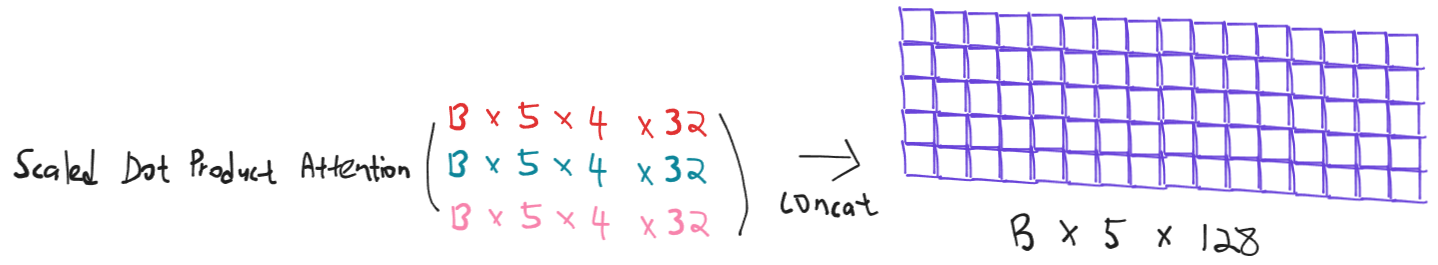 B × 5 × 4 × 32
Scaled Dot Product Attention ( B × 5 × 4 × 32 ) →
B × 5 × 4 × 32
concat
B × 5 × 128